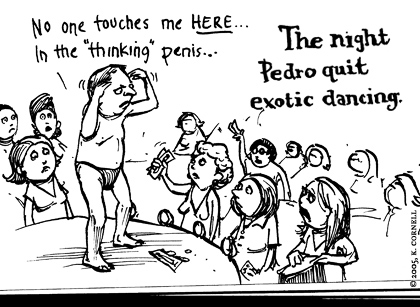 No one touches me HERE...
In the "thinking" penis...
The night
Pedro quit
exotic dancing.
© 2005, K. CORNELL